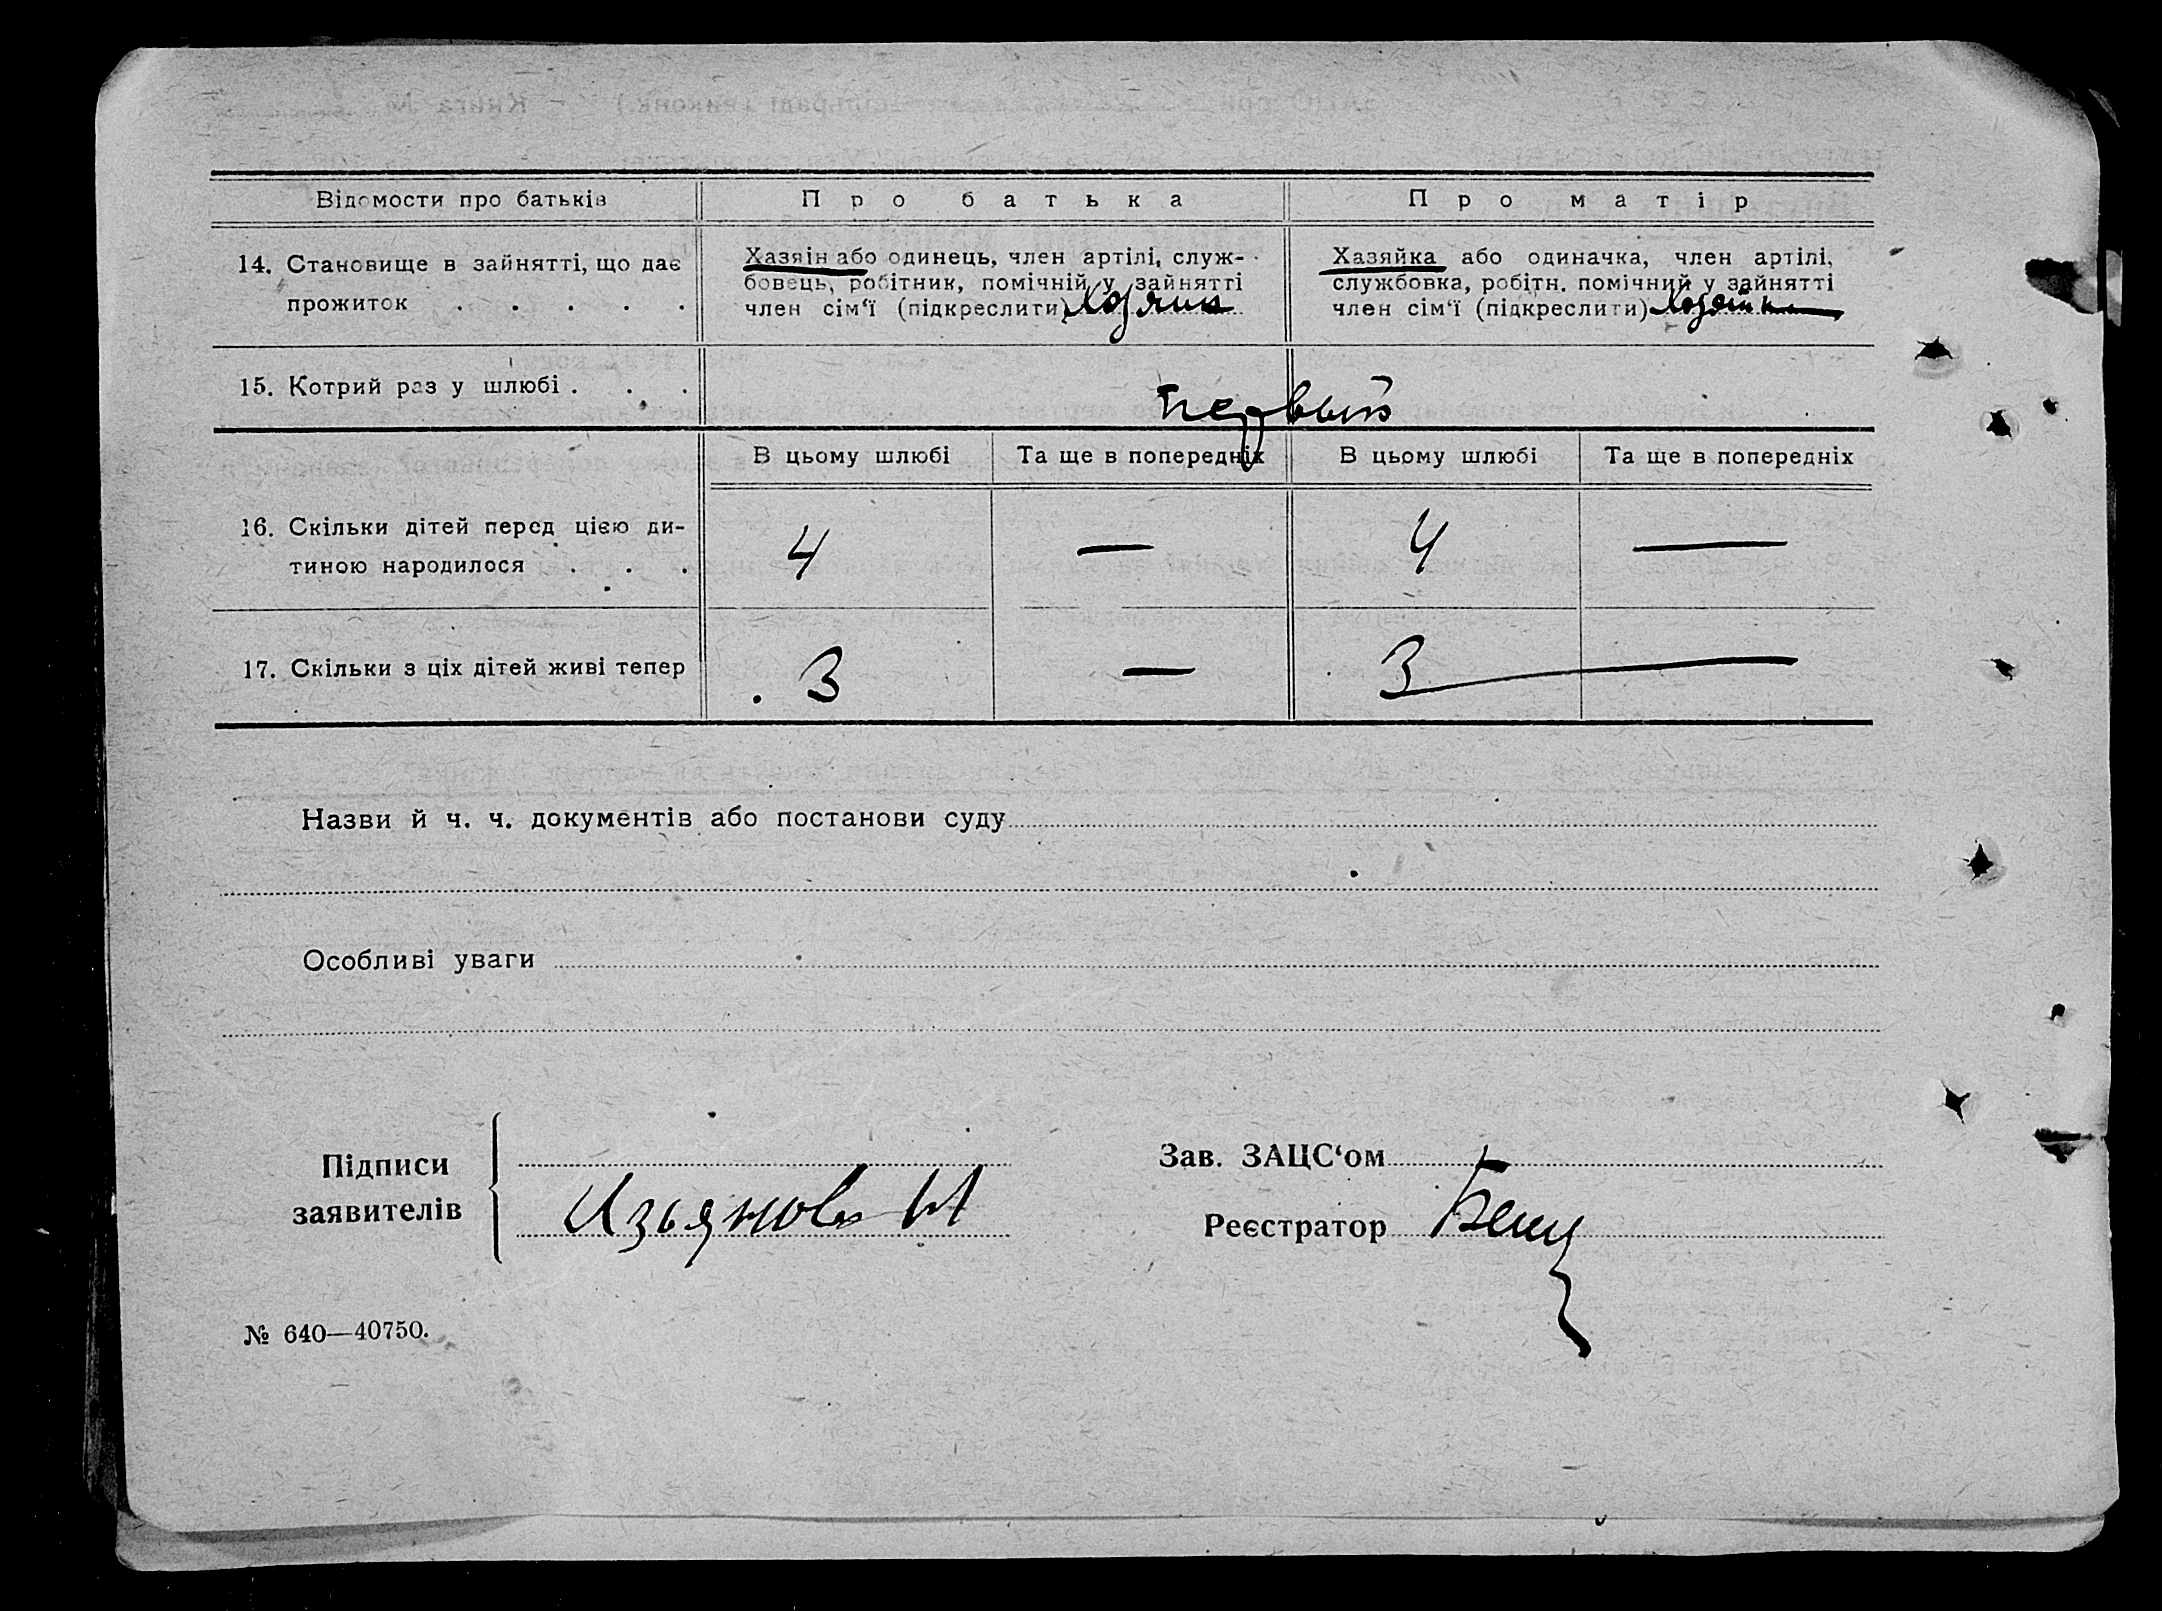 Відомости про батьків
Про батька
Про матір
14. Становище в зайнятті, що дає
прожиток . . . . .
Хазяїн або одинець, член артілі, служ-
бовець, робітник, помічній у зайнятті
член сім‘ї (підкреслити) Хозяин
Хазяйка або одиначка, член артілі,
службовка, робітн. помічний у зайнятті
член сім‘ї (підкреслити) Хозяйка
15. Котрий раз у шлюбі . . .
первый
В цьому шлюбі
Та ще в попередніх
В цьому шлюбі
Та ще в попередніх
16. Скільки дітей перед цією ди-
тиною народилося . . .
4 — 4 —
17. Скільки з ціх дітей живі тепер
3 — 3 —
Назви й ч. ч. документів або постанови суду
Особливі уваги
Підписи
заявителів
Изъянов И
Зав. ЗАЦС‘ом
Реєстратор
№ 640—40750.